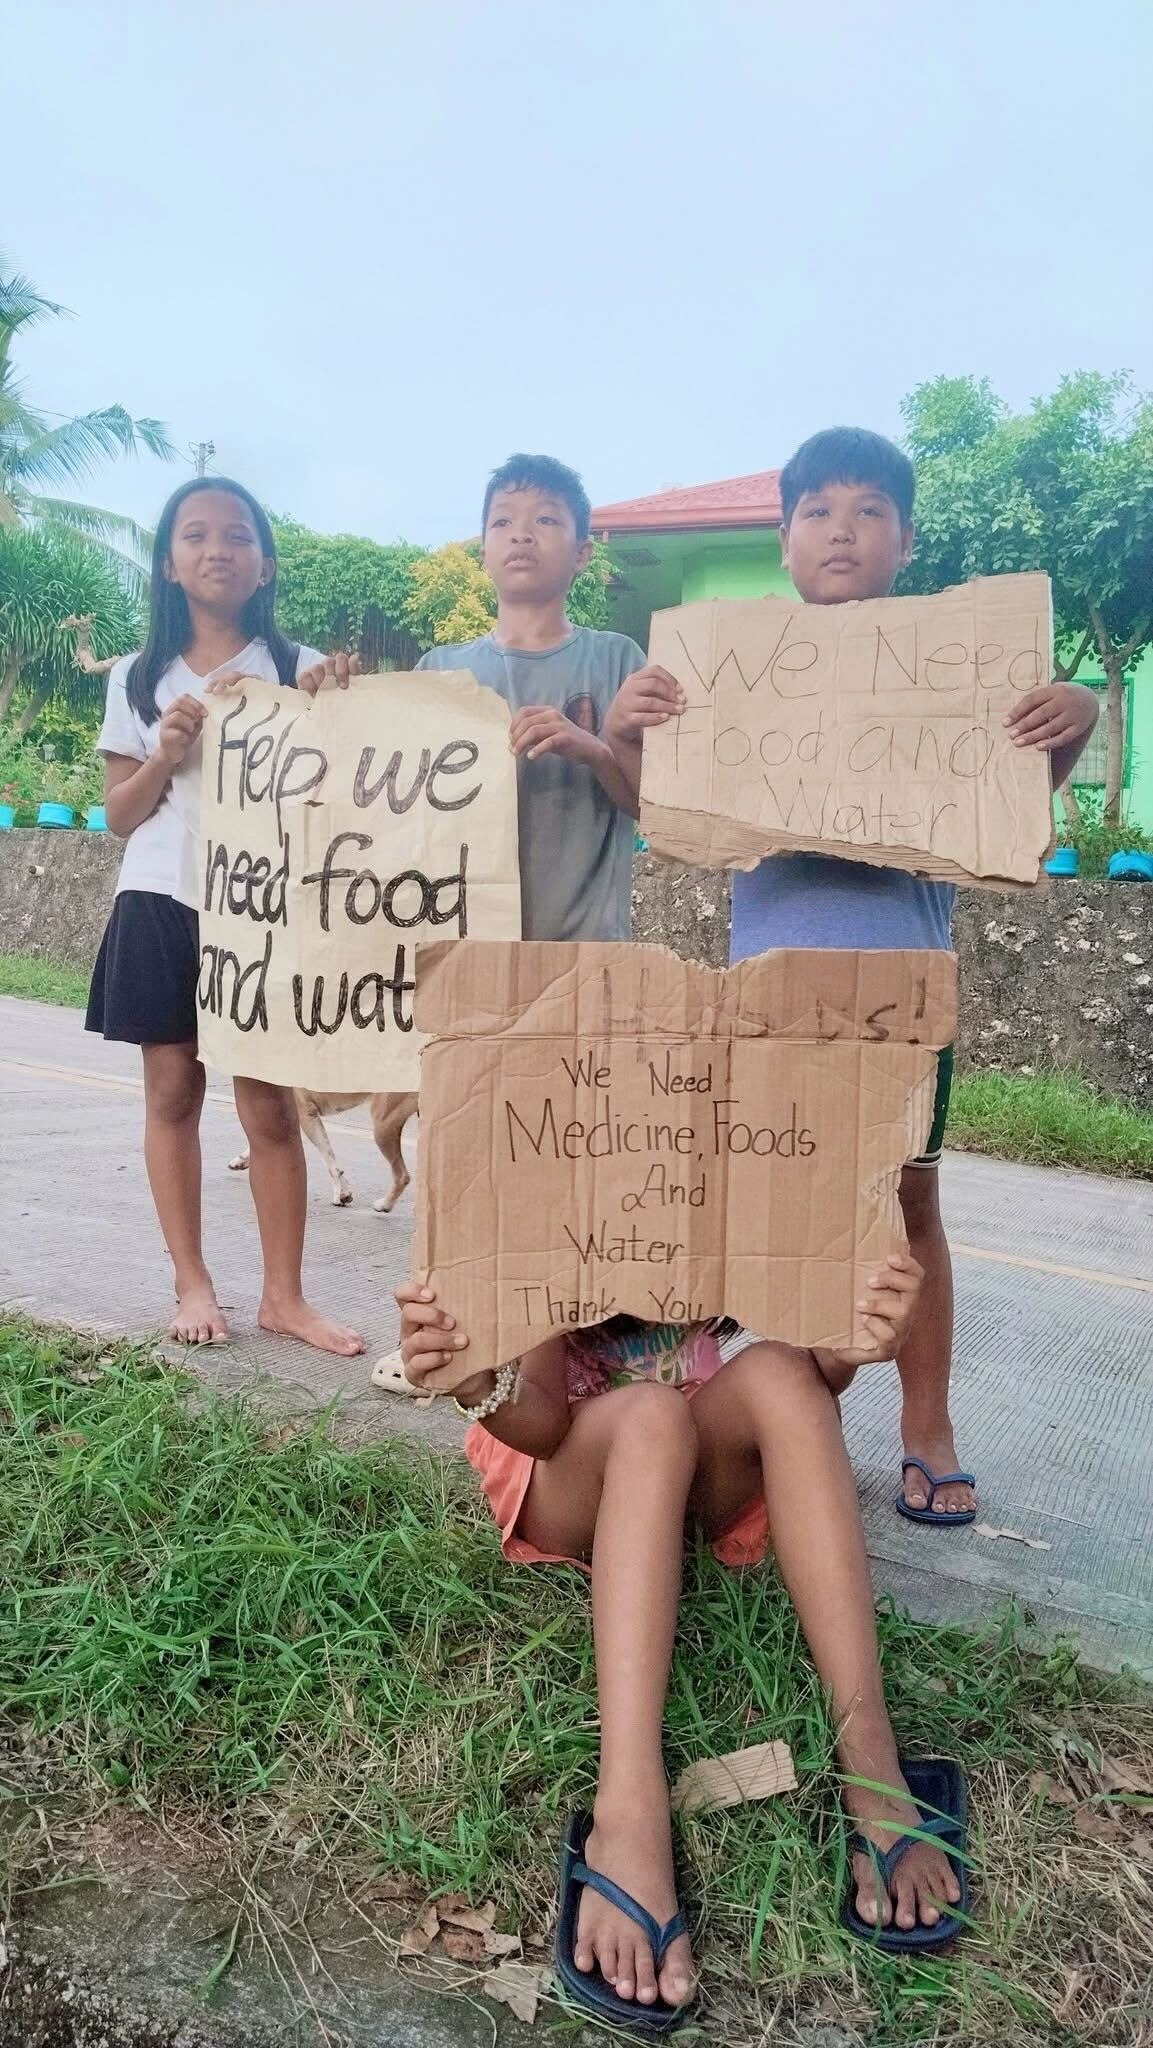 Help we
need food
and wat
We Need
Food and
Water
Help us!
We Need!
Medicine, Foods
And
Water
Thank You